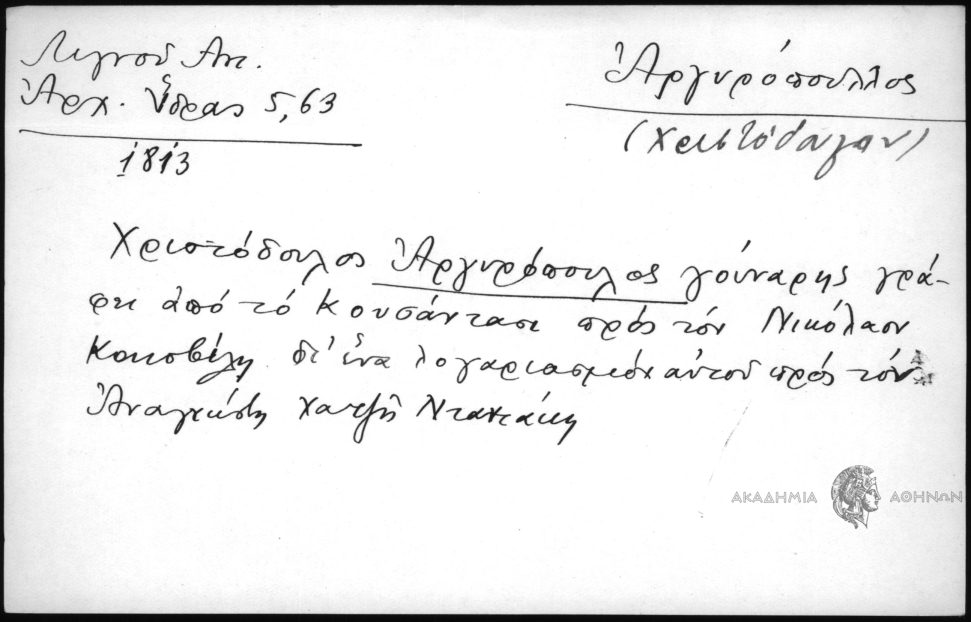 Λιγνοῦ Αντ.
Ἀρχ. Ὕδρας 5,63
1813
Ἀργυρόπουλλος
(Χριστόδουλου)
Χριστόδουλος Ἀργυρόπουλος γούναρης γρά-
φει ἀπό τό Κουσάντασι πρός τόν Νικόλαον
Κοκοβίλη δι' ἕνα λογαριασμόν αὐτοῦ πρός τόν
Ἀναγνώστη χατζῆ
ΑΚΑΔΗΜΙΑ ΑΘΗΝΩΝ